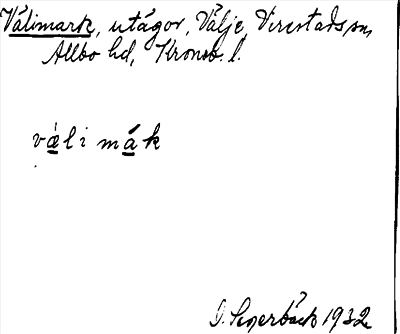 Välimark, utägor, Välje, Virestads sn,
Allbo hd, Kronob. l.
väli måk
D. Segerbäck 1932